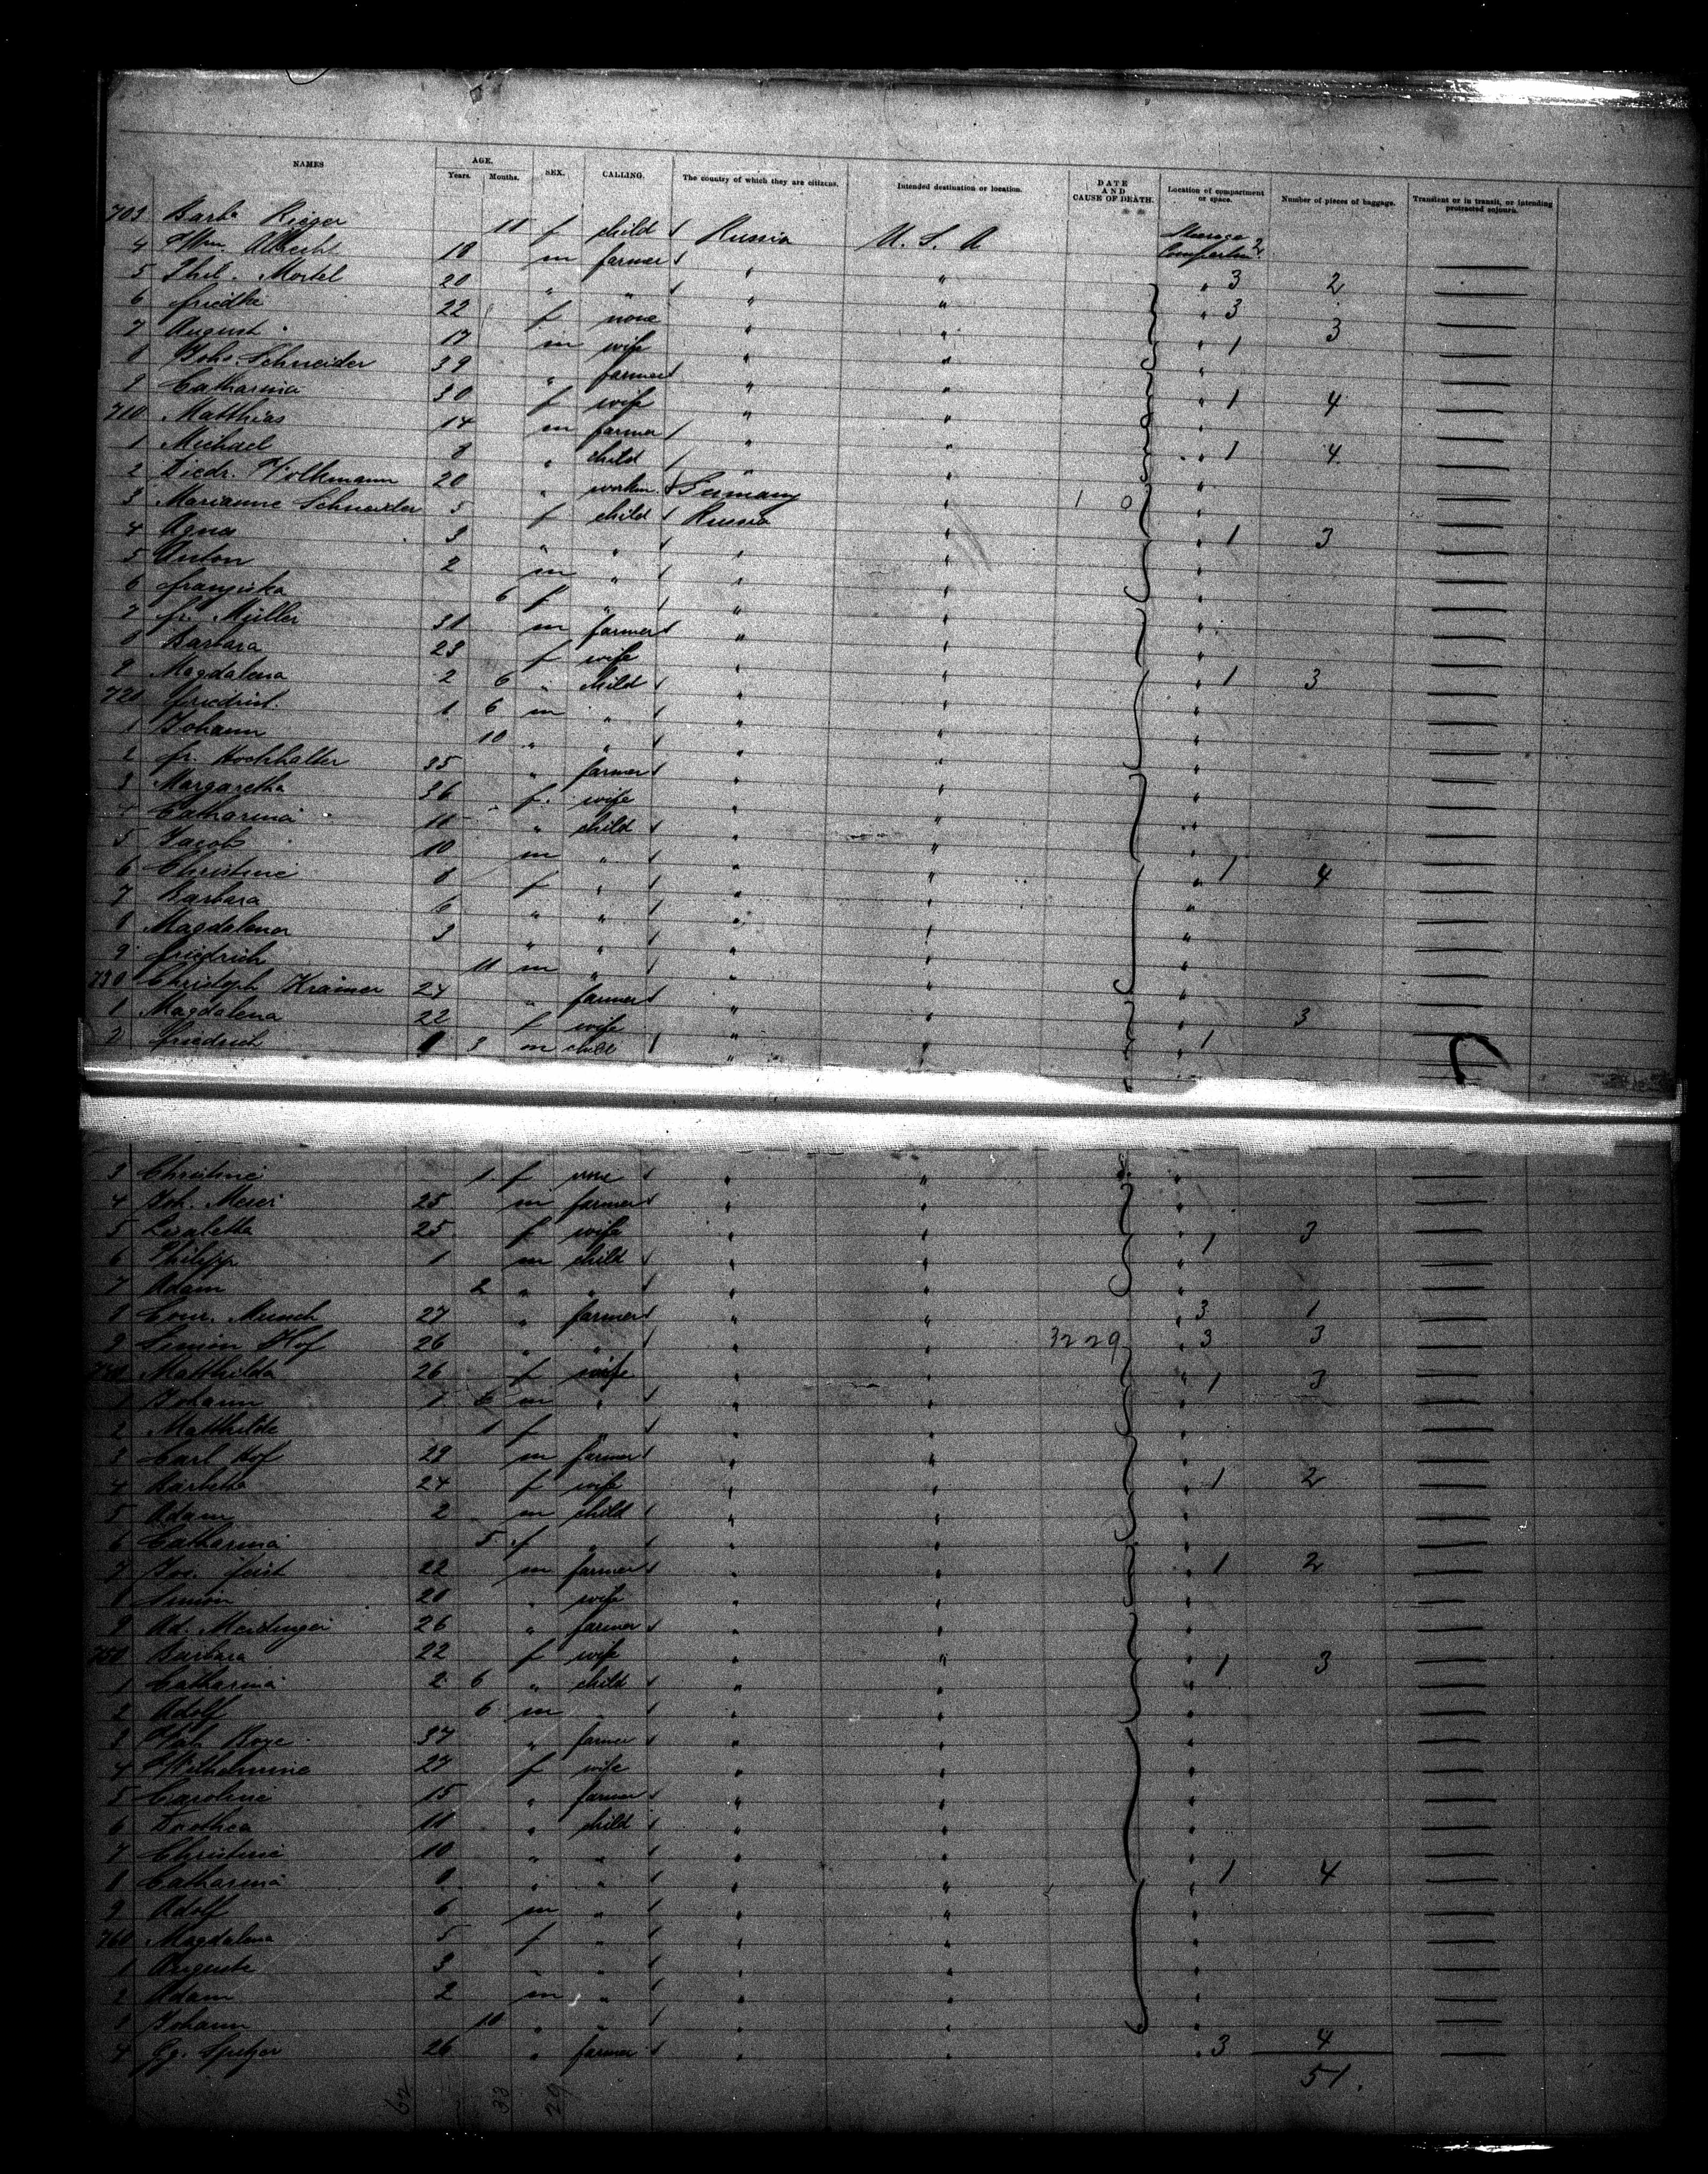 NAMES AGE. Years. Months. SEX. CALLING. The country of which they are citizens. Intended destination or location. DATE AND CAUSE OF DEATH. Location of compartment or space. Number of pieces of baggage. Transient or in transit, or intending protracted sojourn.
703 Barba Rieger 11 f child Russia U. S. A
4 Wm Albrecht 18 m farmer " " 3 2
5 Phil. Mortel 20 " " " " " 3
6 Friedke 22 f none " " 3
7 August 17 m wife " " " 1
8 Johs. Schneider 39 " farmer " " "
9 Catharina 30 f wife " " " 1 4
710 Matthias 14 m farmer " " "
1 Michael 8 " child " " " 1 4
2 Diedr. Volkmann 20 " workm. Germany "
3 Marianne Schneider 5 f child Russia " 1 0 "
4 Agnes 3 " " " " " 1 3
5 Anton 2 m " " " "
6 Franziska 6 f " " " "
7 Fr. Müller 31 m farmer " " "
8 Barbara 23 f wife " " "
9 Magdalena 2 6 " child " " " 1 3
720 Friedrich 1 6 m " " " "
1 Johann 10 " " " " "
2 Fr. Hochhalter 35 " farmer " " "
3 Margaretha 36 f. wife " " "
4 Catharina 11 " child " " "
5 Jacob 10 m " " " "
6 Christine 8 f " " " " 1 4
7 Barbara 6 " " " " "
8 Magdalena 3 " " " " "
9 Friedrich 11 m " " " "
730 Christoph Kramer 24 " farmer " " "
1 Magdalena 22 f wife " " " 3
2 Friedrich 1 3 m child " " " 1
3 Christine 1 f none " " "
4 Joh. Meier 25 m farmer " " "
5 Lisabetha 25 f wife " " " 1 3
6 Philipp 1 m child " " "
7 Adam 2 " " " " "
8 Conr. Munch 27 " farmer " " " 3 1
9 Simon Hof 26 " " " " 3229 " 3 3
740 Matthilda 26 f wife " " " 1 3
1 Johann 1 6 m " " " "
2 Matthilde 1 f " " " "
3 Carl Hof 29 m farmer " " "
4 Barbetha 24 f wife " " " 1 2
5 Adam 2 m child " " "
6 Catharina 5 f " " " "
7 Jos. Feist 22 m farmer " " " 1 2
8 Simon 20 " wife " " "
9 Ad. Meidinger 26 " farmer " " "
750 Barbara 22 f wife " " " 1 3
1 Catharina 2 6 " child " " "
2 Adolf 6 m " " " "
3 37 " farmer " " "
4 Wilhelmine 27 f wife " " "
5 Caroline 15 " farmer " " "
6 Dorthea 11 " child " " "
7 Christine 10 " " " " "
8 Catharina 8 " " " " " 1 4
9 Adolf 6 m " " " "
760 Magdalena 5 f " " " "
1 Auguste 3 " " " " "
2 Adam 2 m " " " "
3 Johann 10 " " " " "
4 Gg. Spitzer 26 " farmer " " " 3 4
62 33 29 51.